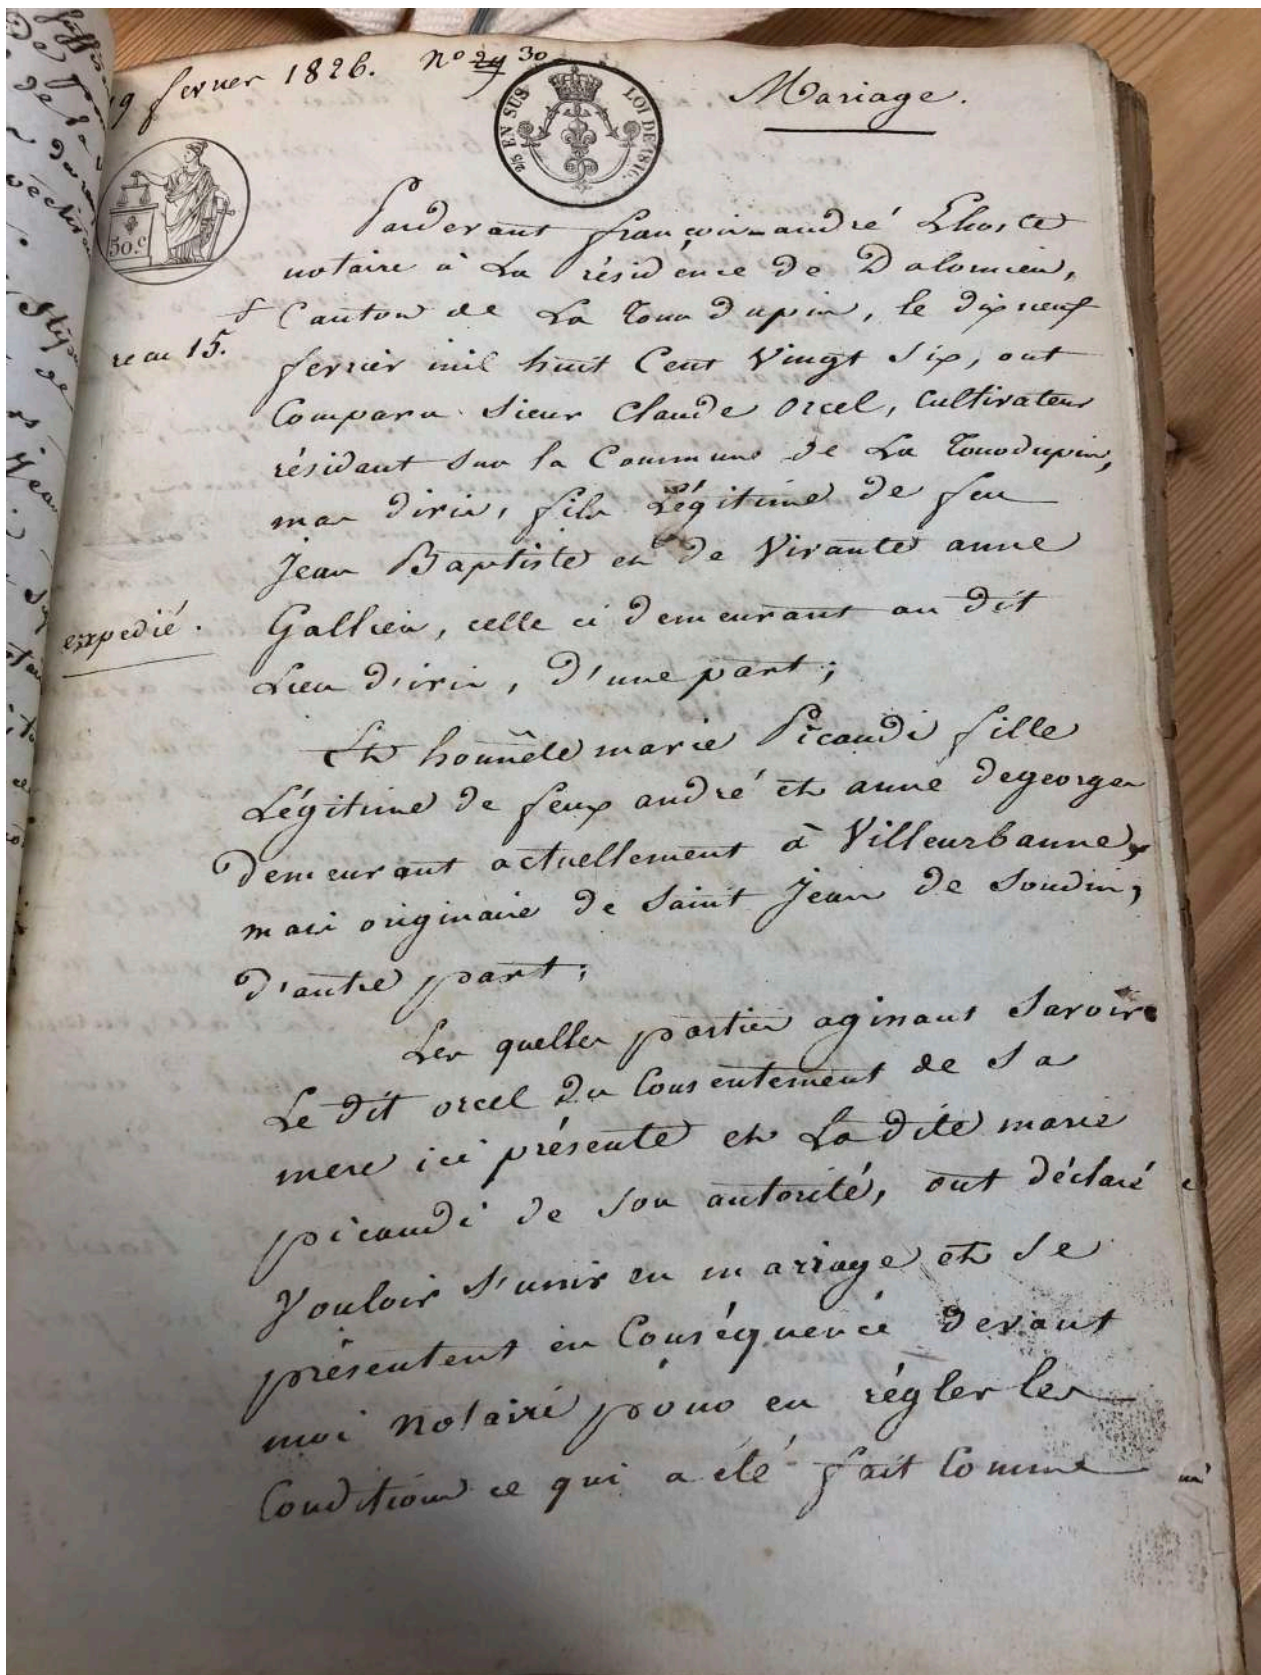 19 fevrier 1826. N° 29 30
Mariage.
2/5 EN SUS LOI DE 1816.
50.c
Pardevant françois-andré Lhoste
notaire à La résidence de Dolomieu,
Canton de La Tour Dupin, le dix neuf
fevrier mil huit Cent Vingt Six, ont
re au 15.
Comparu Sieur Claude Orcel, Cultivateur
résidant Sur la Commune de La Tourdupin,
mas d'iris, fils Légitime de feu
Jean Baptiste et de Vivante anne
expedié.
Gallien, celle ci demeurant au dit
Lieu d'iris, d'une part;
Et honnête marie Picaudi fille
Légitime de feux andré et anne degeorges
demeurant actuellement à Villeurbanne,
mais originaire de Saint Jean de Soudin;
d'autre part;
Les quelles parties agissant Savoir
Le dit orcel du Consentement de Sa
mere ici présente et La dite marie
picaudi de Son autorité, ont déclaré
Vouloir S'unir en mariage et Se
présentent en Conséquence devant
moi Notaire pour en régler les
Conditions ce qui a été fait Comme